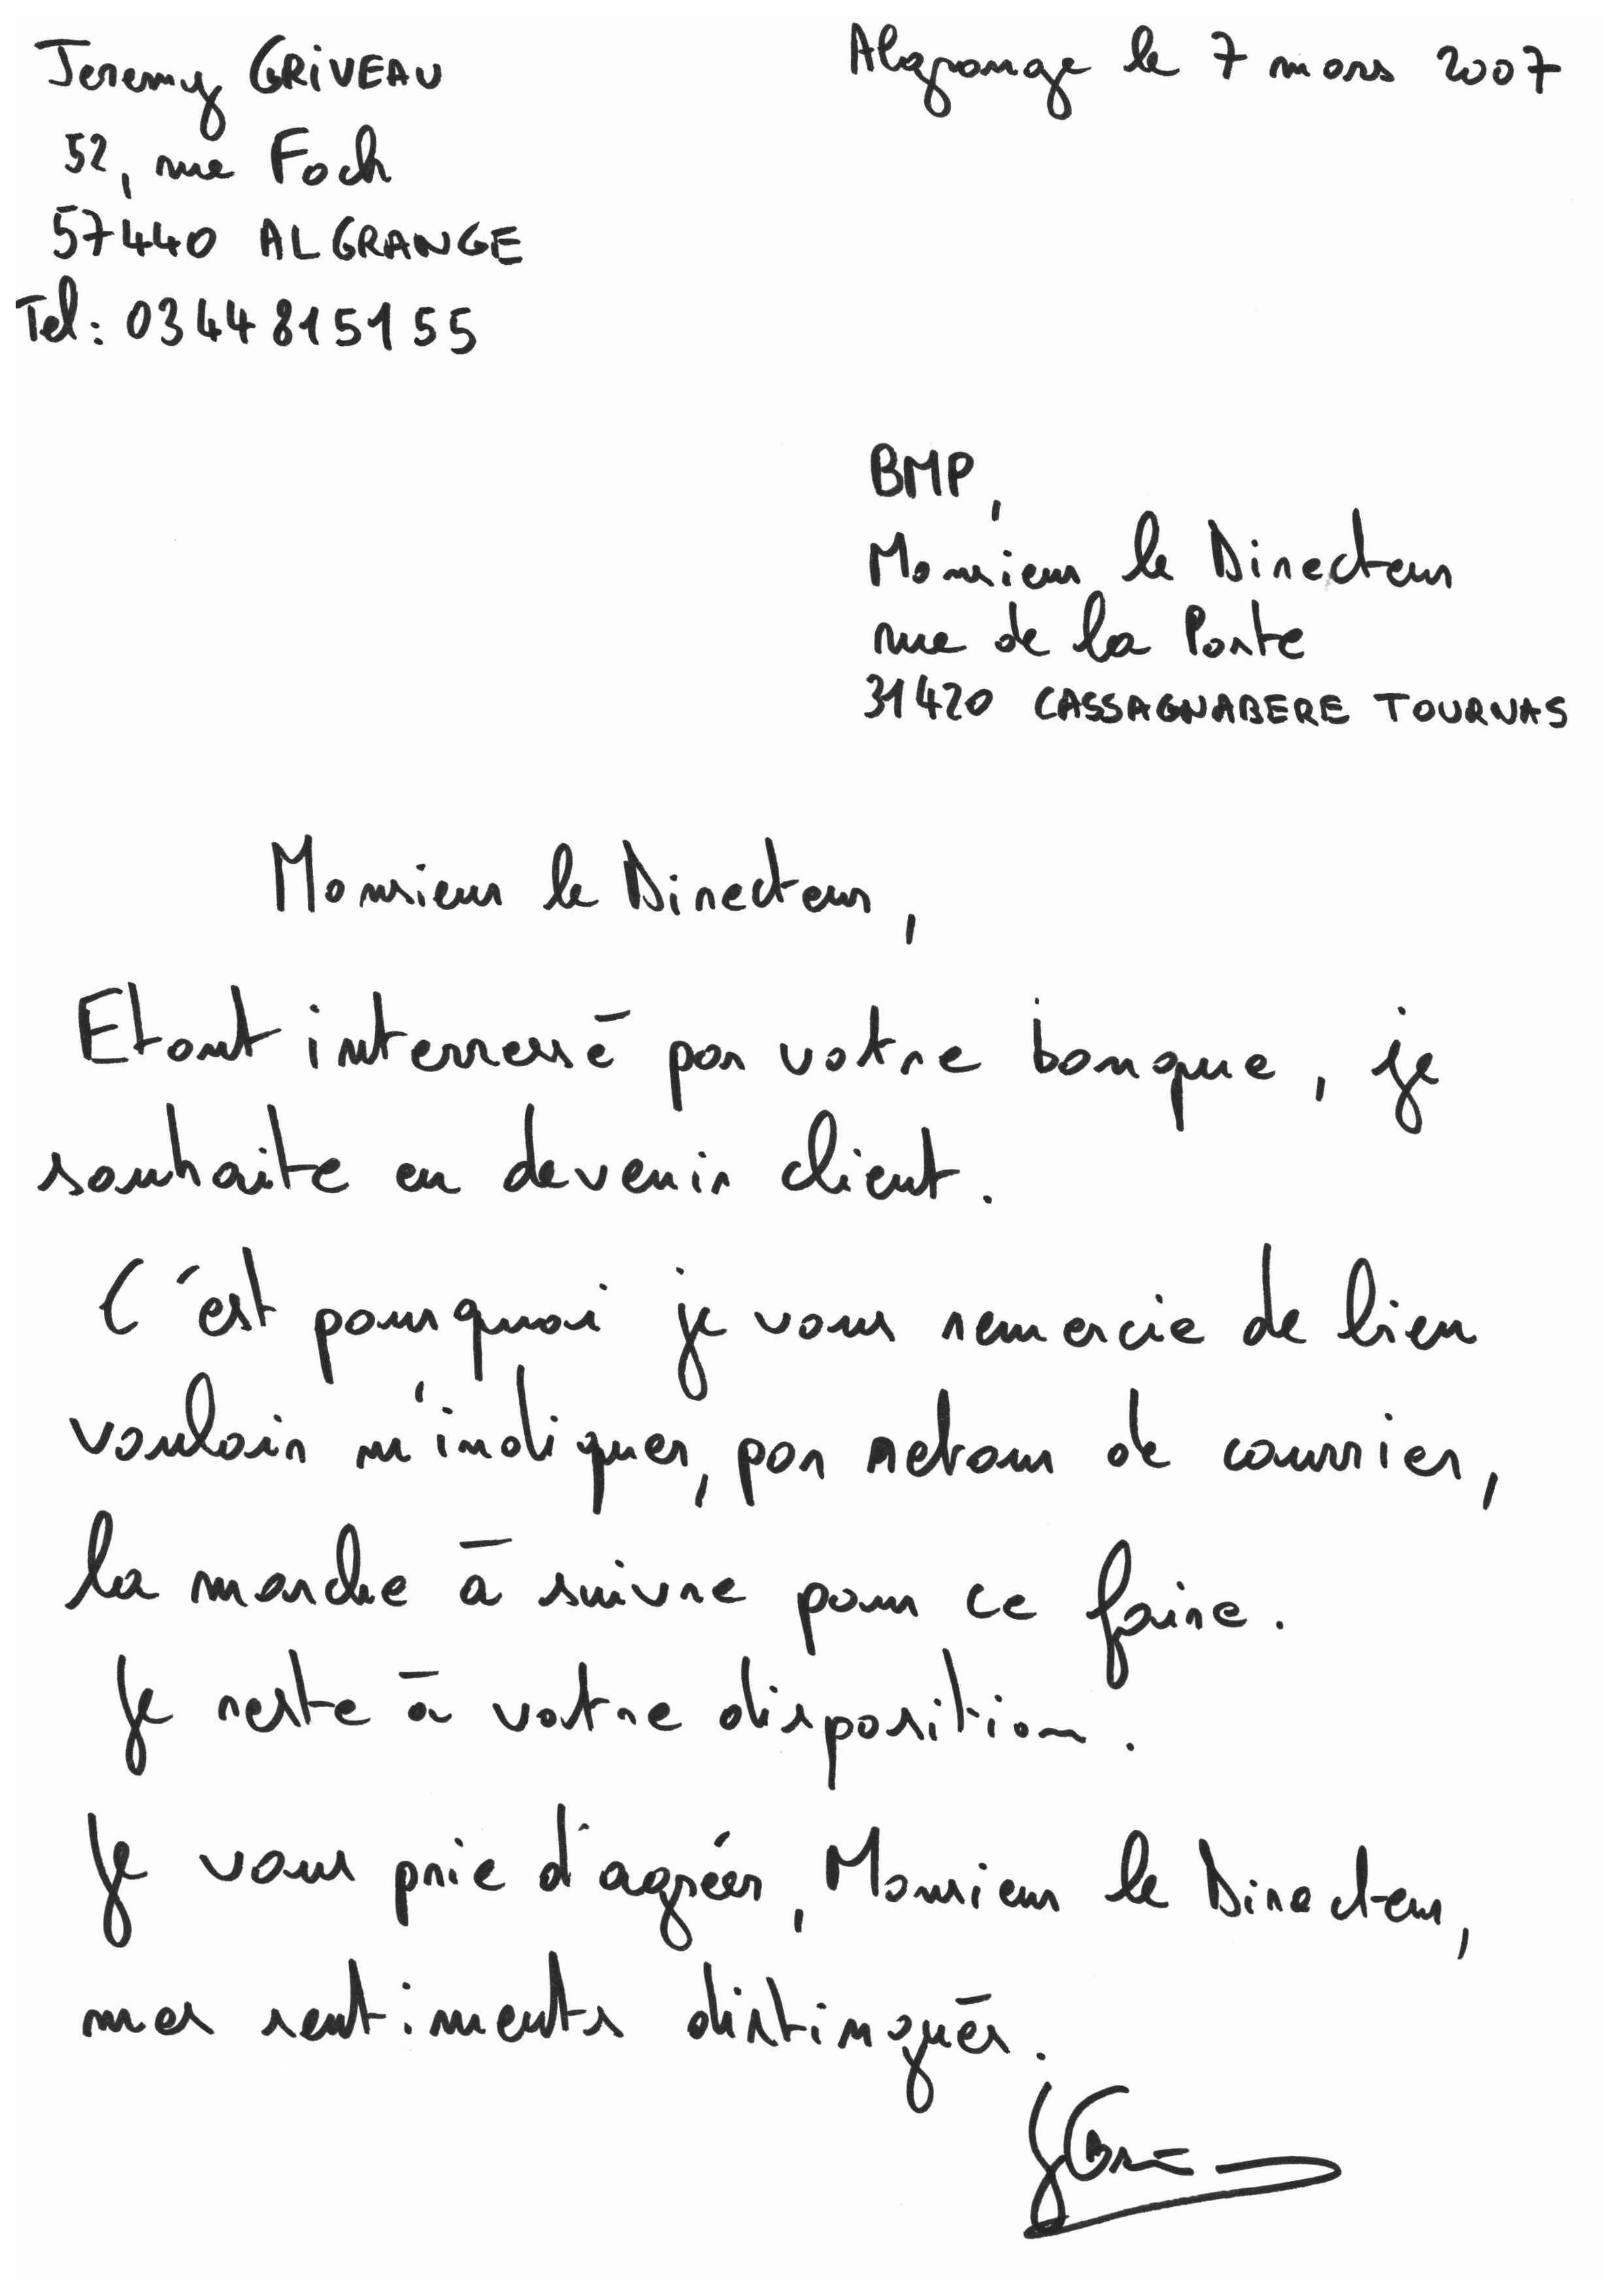 Jeremy GRIVEAU
52, rue Foch
57440 ALGRANGE
Tel: 0344815155
Algrange le 7 mars 2007
BMP,
Monsieur le Directeur
rue de la Porte
31420 CASSAGNABERE TOURNAS
Monsieur le Directeur,
Etant interressé par votre banque, je
souhaite en devenir client.
C'est pourquoi je vous remercie de bien
vouloir m'indiquer, par retour de courrier,
la marche à suivre pour ce faire.
Je reste à votre disposition.
Je vous prie d'agréer, Monsieur le Directeur,
mes sentiments distingués.